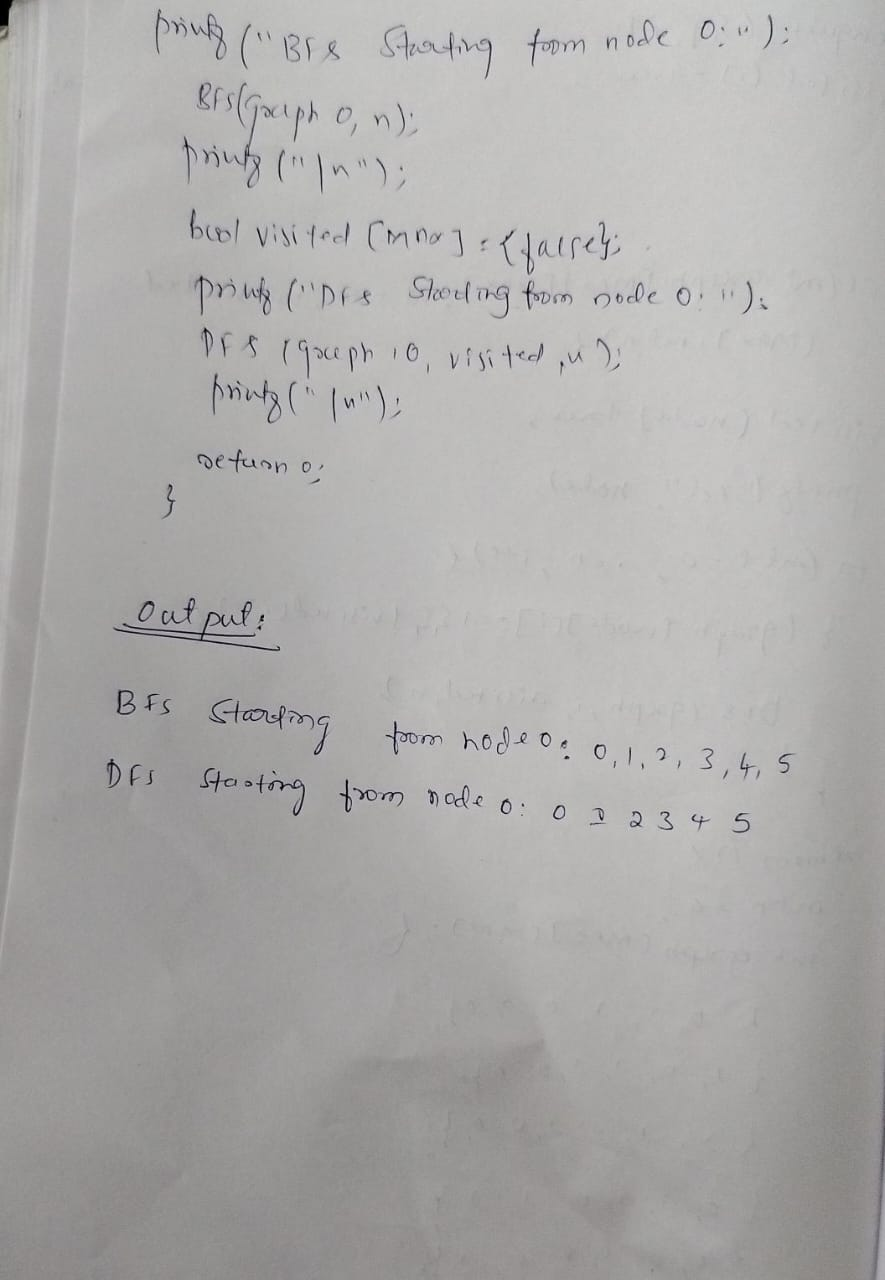 printf ("BFS Starting from node 0: ");
BFS(graph 0, n);
printf ("\n");
bool visited [max] = {false};
printf ("DFS Starting from node 0: ");
DFS (graph, 0, visited, n);
printf ("\n");
return 0;
}
Output:
BFS Starting from node 0: 0, 1, 2, 3, 4, 5
DFS Starting from node 0: 0 1 2 3 4 5